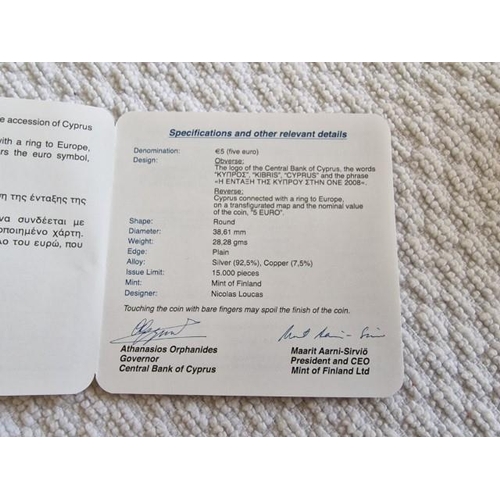 e accession of Cyprus
with a ring to Europe,
rs the euro symbol,
ση της ένταξης της
να συνδέεται με
οποιημένο χάρτη.
λο του ευρώ, που
Specifications and other relevant details
Denomination: €5 (five euro)
Design: Obverse:
The logo of the Central Bank of Cyprus, the words
"ΚΥΠΡΟΣ", "KIBRIS", "CYPRUS" and the phrase
«Η ΕΝΤΑΞΗ ΤΗΣ ΚΥΠΡΟΥ ΣΤΗΝ ΟΝΕ 2008».
Reverse:
Cyprus connected with a ring to Europe,
on a transfigurated map and the nominal value
of the coin, "5 EURO".
Shape: Round
Diameter: 38,61 mm
Weight: 28,28 gms
Edge: Plain
Alloy: Silver (92,5%), Copper (7,5%)
Issue Limit: 15.000 pieces
Mint: Mint of Finland
Designer: Nicolas Loucas
Touching the coin with bare fingers may spoil the finish of the coin.
Athanasios Orphanides Maarit Aarni-Sirviö
Governor President and CEO
Central Bank of Cyprus Mint of Finland Ltd